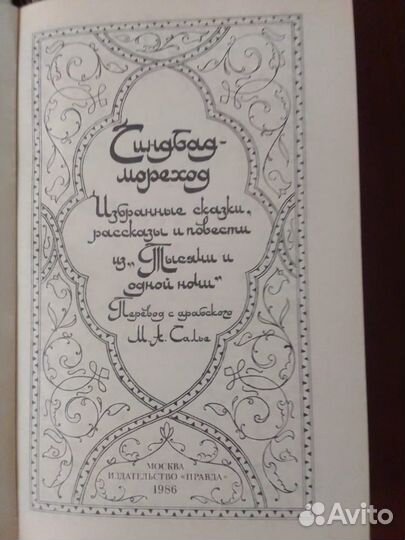 Синдбад-
мореход
Избранные сказки,
рассказы и повести
из „Тысячи и
одной ночи"
Перевод с арабского
М. А. Салье
МОСКВА
ИЗДАТЕЛЬСТВО «ПРАВДА»
1986
Avito